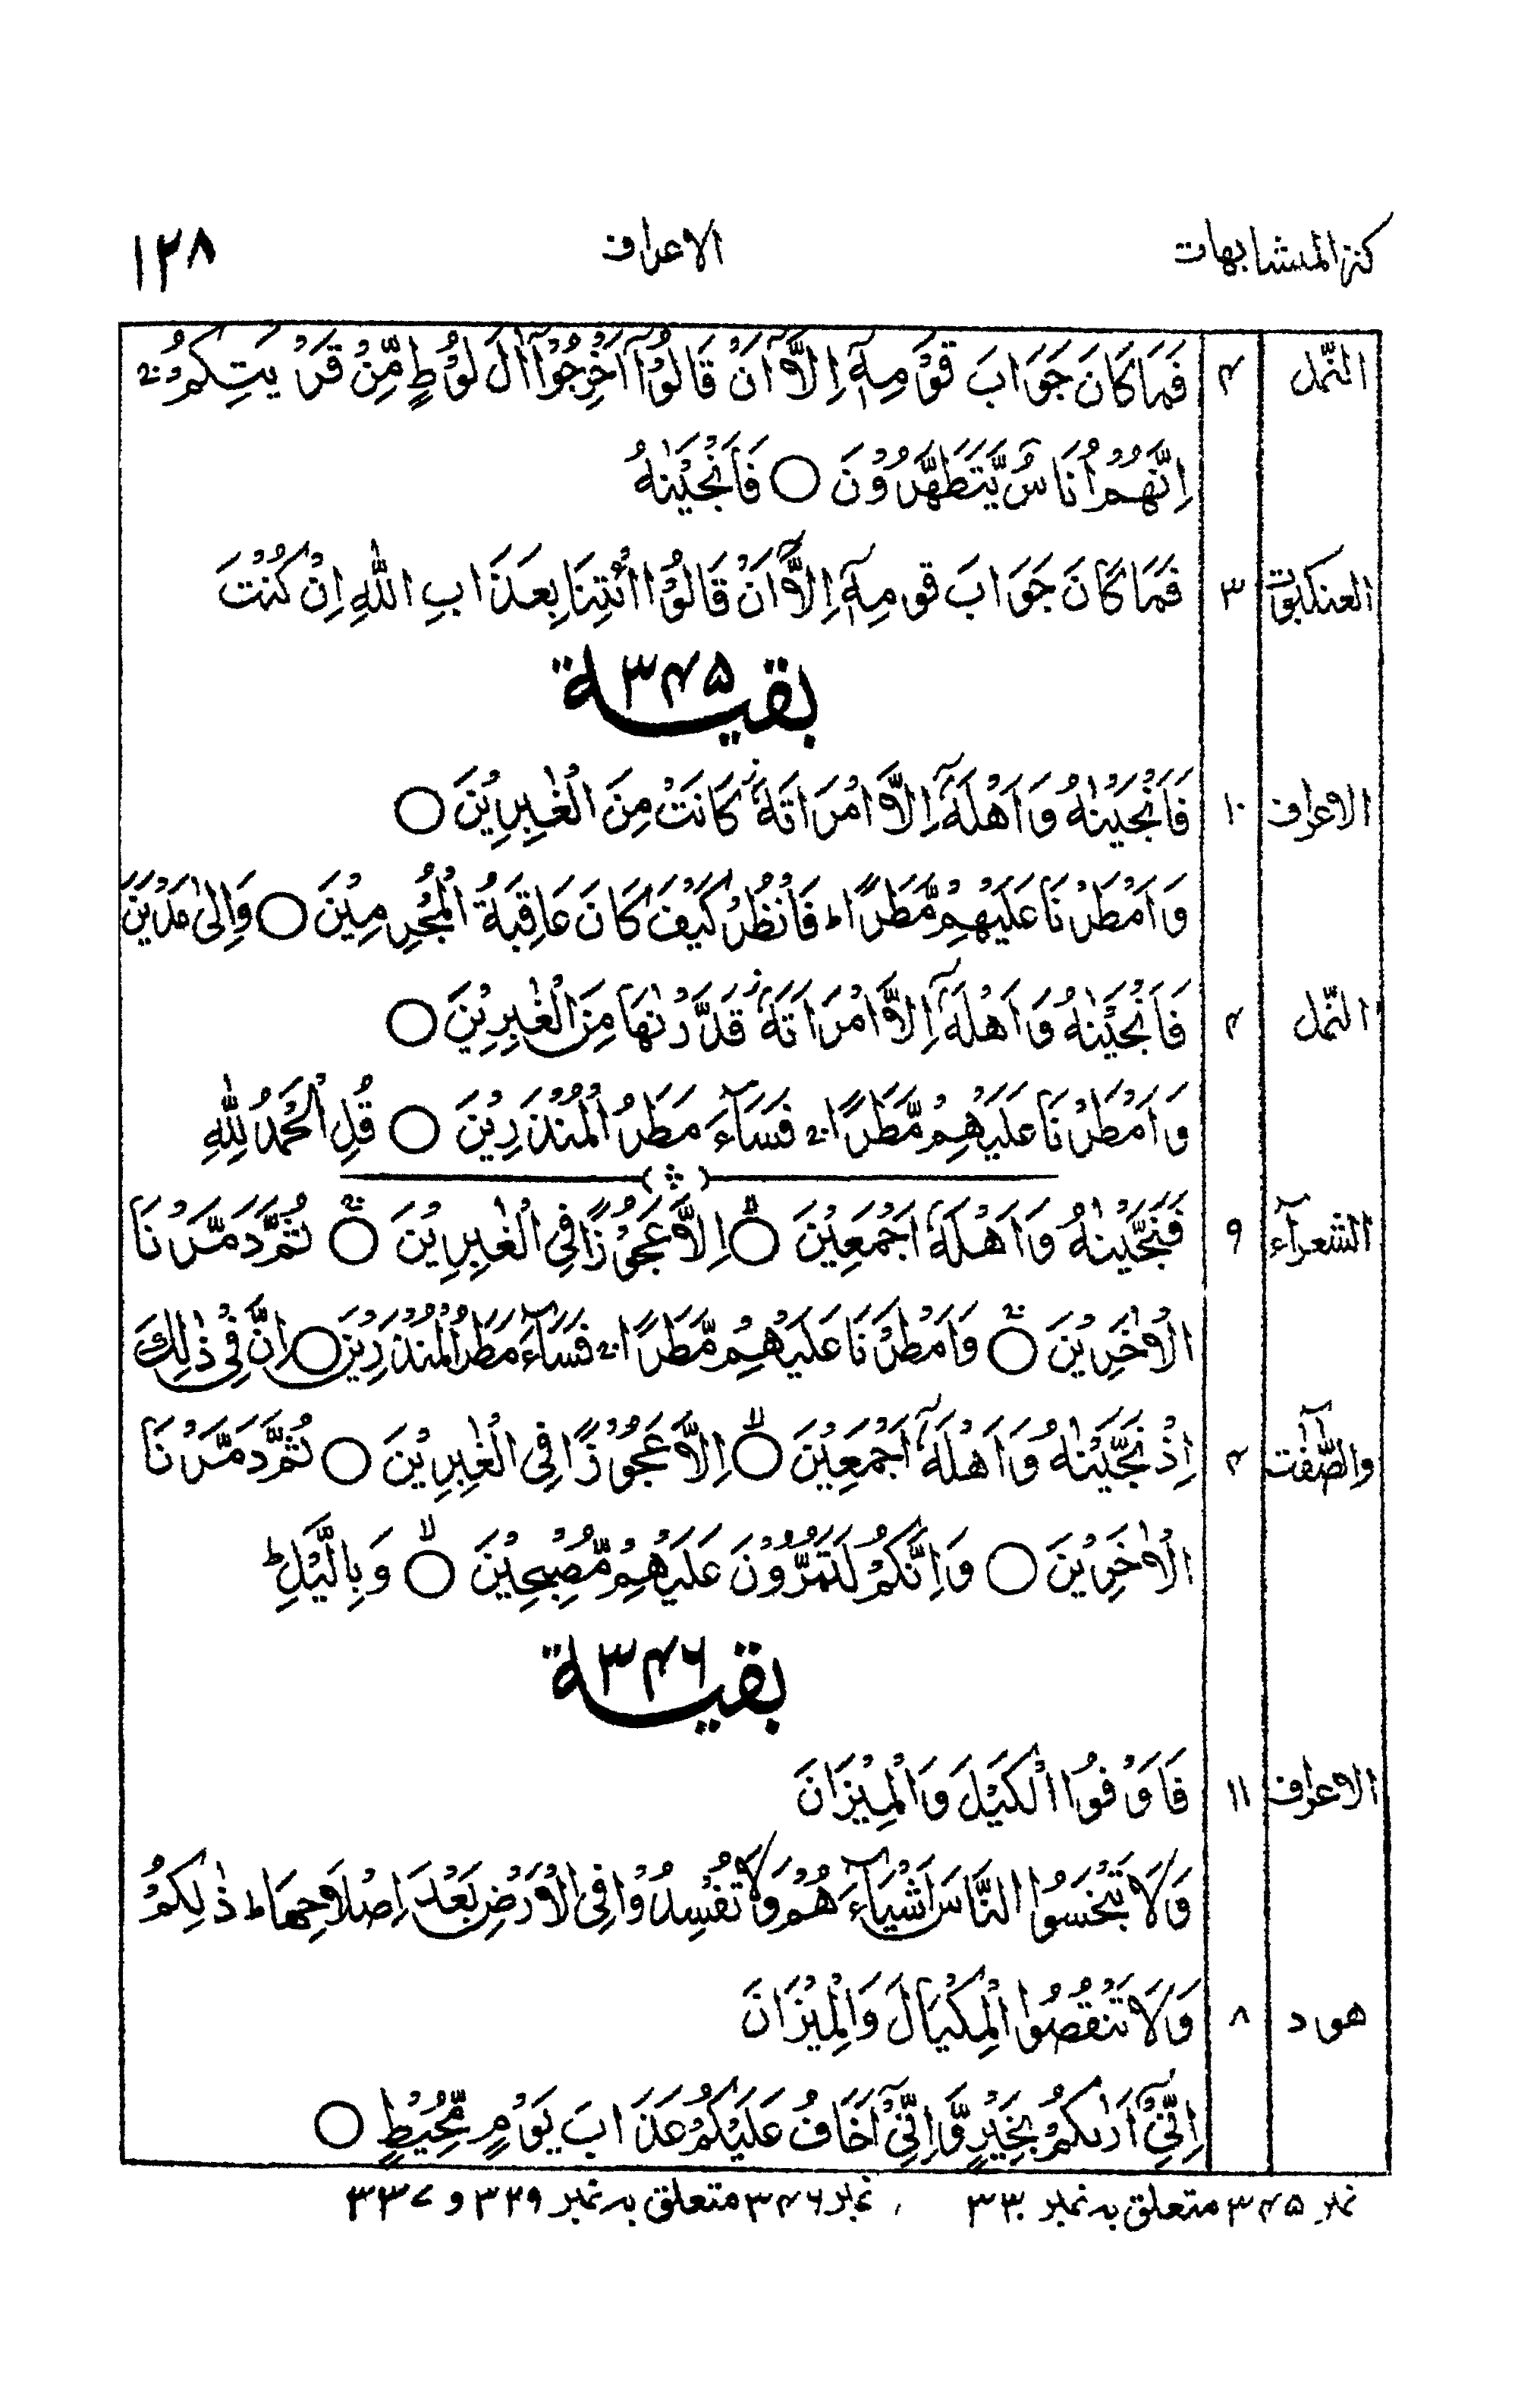 كنز المتشابهات الاعراف ١٢٨
النّمل ۴ فَمَا كَانَ جَوَابَ قَوْمِهٖٓ اِلَّآ اَنْ قَالُوْٓا اَخْرِجُوْٓا اٰلَ لُوْطٍ مِّنْ قَرْيَتِكُمْ ۚ
اِنَّهُمْ اُنَاسٌ يَّتَطَهَّرُوْنَ ○ فَاَنْجَيْنٰهُ
العنكبوت ٣ فَمَا كَانَ جَوَابَ قومِهٖٓ اِلَّآ اَنْ قَالُوا ائْتِنَا بِعَذَابِ اللّٰهِ اِنْ كُنْتَ
بقية ٣۴۵
الاعراف ١٠ فَاَنْجَيْنٰهُ وَاَهْلَهٗٓ اِلَّا امْرَاَتَهٗ ۖ كَانَتْ مِنَ الْغٰبِرِيْنَ ○
وَاَمْطَرْنَا عَلَيْهِمْ مَّطَرًا ؕ فَانْظُرْ كَيْفَ كَانَ عَاقِبَةُ الْمُجْرِمِيْنَ ○ وَاِلٰى مَدْيَنَ
النّمل ۴ فَاَنْجَيْنٰهُ وَاَهْلَهٗٓ اِلَّا امْرَاَتَهٗ ۖ قَدَّرْنٰهَا مِنَ الْغٰبِرِيْنَ ○
وَاَمْطَرْنَا عَلَيْهِمْ مَّطَرًا ۚ فَسَآءَ مَطَرُ الْمُنْذَرِيْنَ ○ قُلِ الْحَمْدُ لِلّٰهِ
الشعرآء ٩ فَنَجَّيْنٰهُ وَاَهْلَهٗٓ اَجْمَعِيْنَ ○ۙ اِلَّا عَجُوْزًا فِى الْغٰبِرِيْنَ ○ۚ ثُمَّ دَمَّرْنَا
الْاٰخَرِيْنَ ○ۚ وَاَمْطَرْنَا عَلَيْهِمْ مَّطَرًا ۚ فَسَآءَ مَطَرُ الْمُنْذَرِيْنَ ○ اِنَّ فِىْ ذٰلِكَ
والصّٰٓفّٰت ۴ اِذْ نَجَّيْنٰهُ وَاَهْلَهٗٓ اَجْمَعِيْنَ ○ۙ اِلَّا عَجُوْزًا فِى الْغٰبِرِيْنَ ○ ثُمَّ دَمَّرْنَا
الْاٰخَرِيْنَ ○ وَاِنَّكُمْ لَتَمُرُّوْنَ عَلَيْهِمْ مُّصْبِحِيْنَ ○ۙ وَبِالَّيْلِ ؕ
بقية ٣۴۶
الاعراف ١١ فَاَوْفُوا الْكَيْلَ وَالْمِيْزَانَ
وَلَا تَبْخَسُوا النَّاسَ اَشْيَآءَهُمْ وَلَا تُفْسِدُوْا فِى الْاَرْضِ بَعْدَ اِصْلَاحِهَا ؕ ذٰلِكُمْ
هود ٨ وَلَا تَنْقُصُوا الْمِكْيَالَ وَالْمِيْزَانَ
اِنِّىْٓ اَرٰىكُمْ بِخَيْرٍ وَّاِنِّىْٓ اَخَافُ عَلَيْكُمْ عَذَابَ يَوْمٍ مُّحِيْطٍ ○
نمبر ٣۴۵ متعلق بہ نمبر ٣٣٠ ، نمبر ٣۴۶ متعلق بہ نمبر ٣٢٩ و ٣٣٧